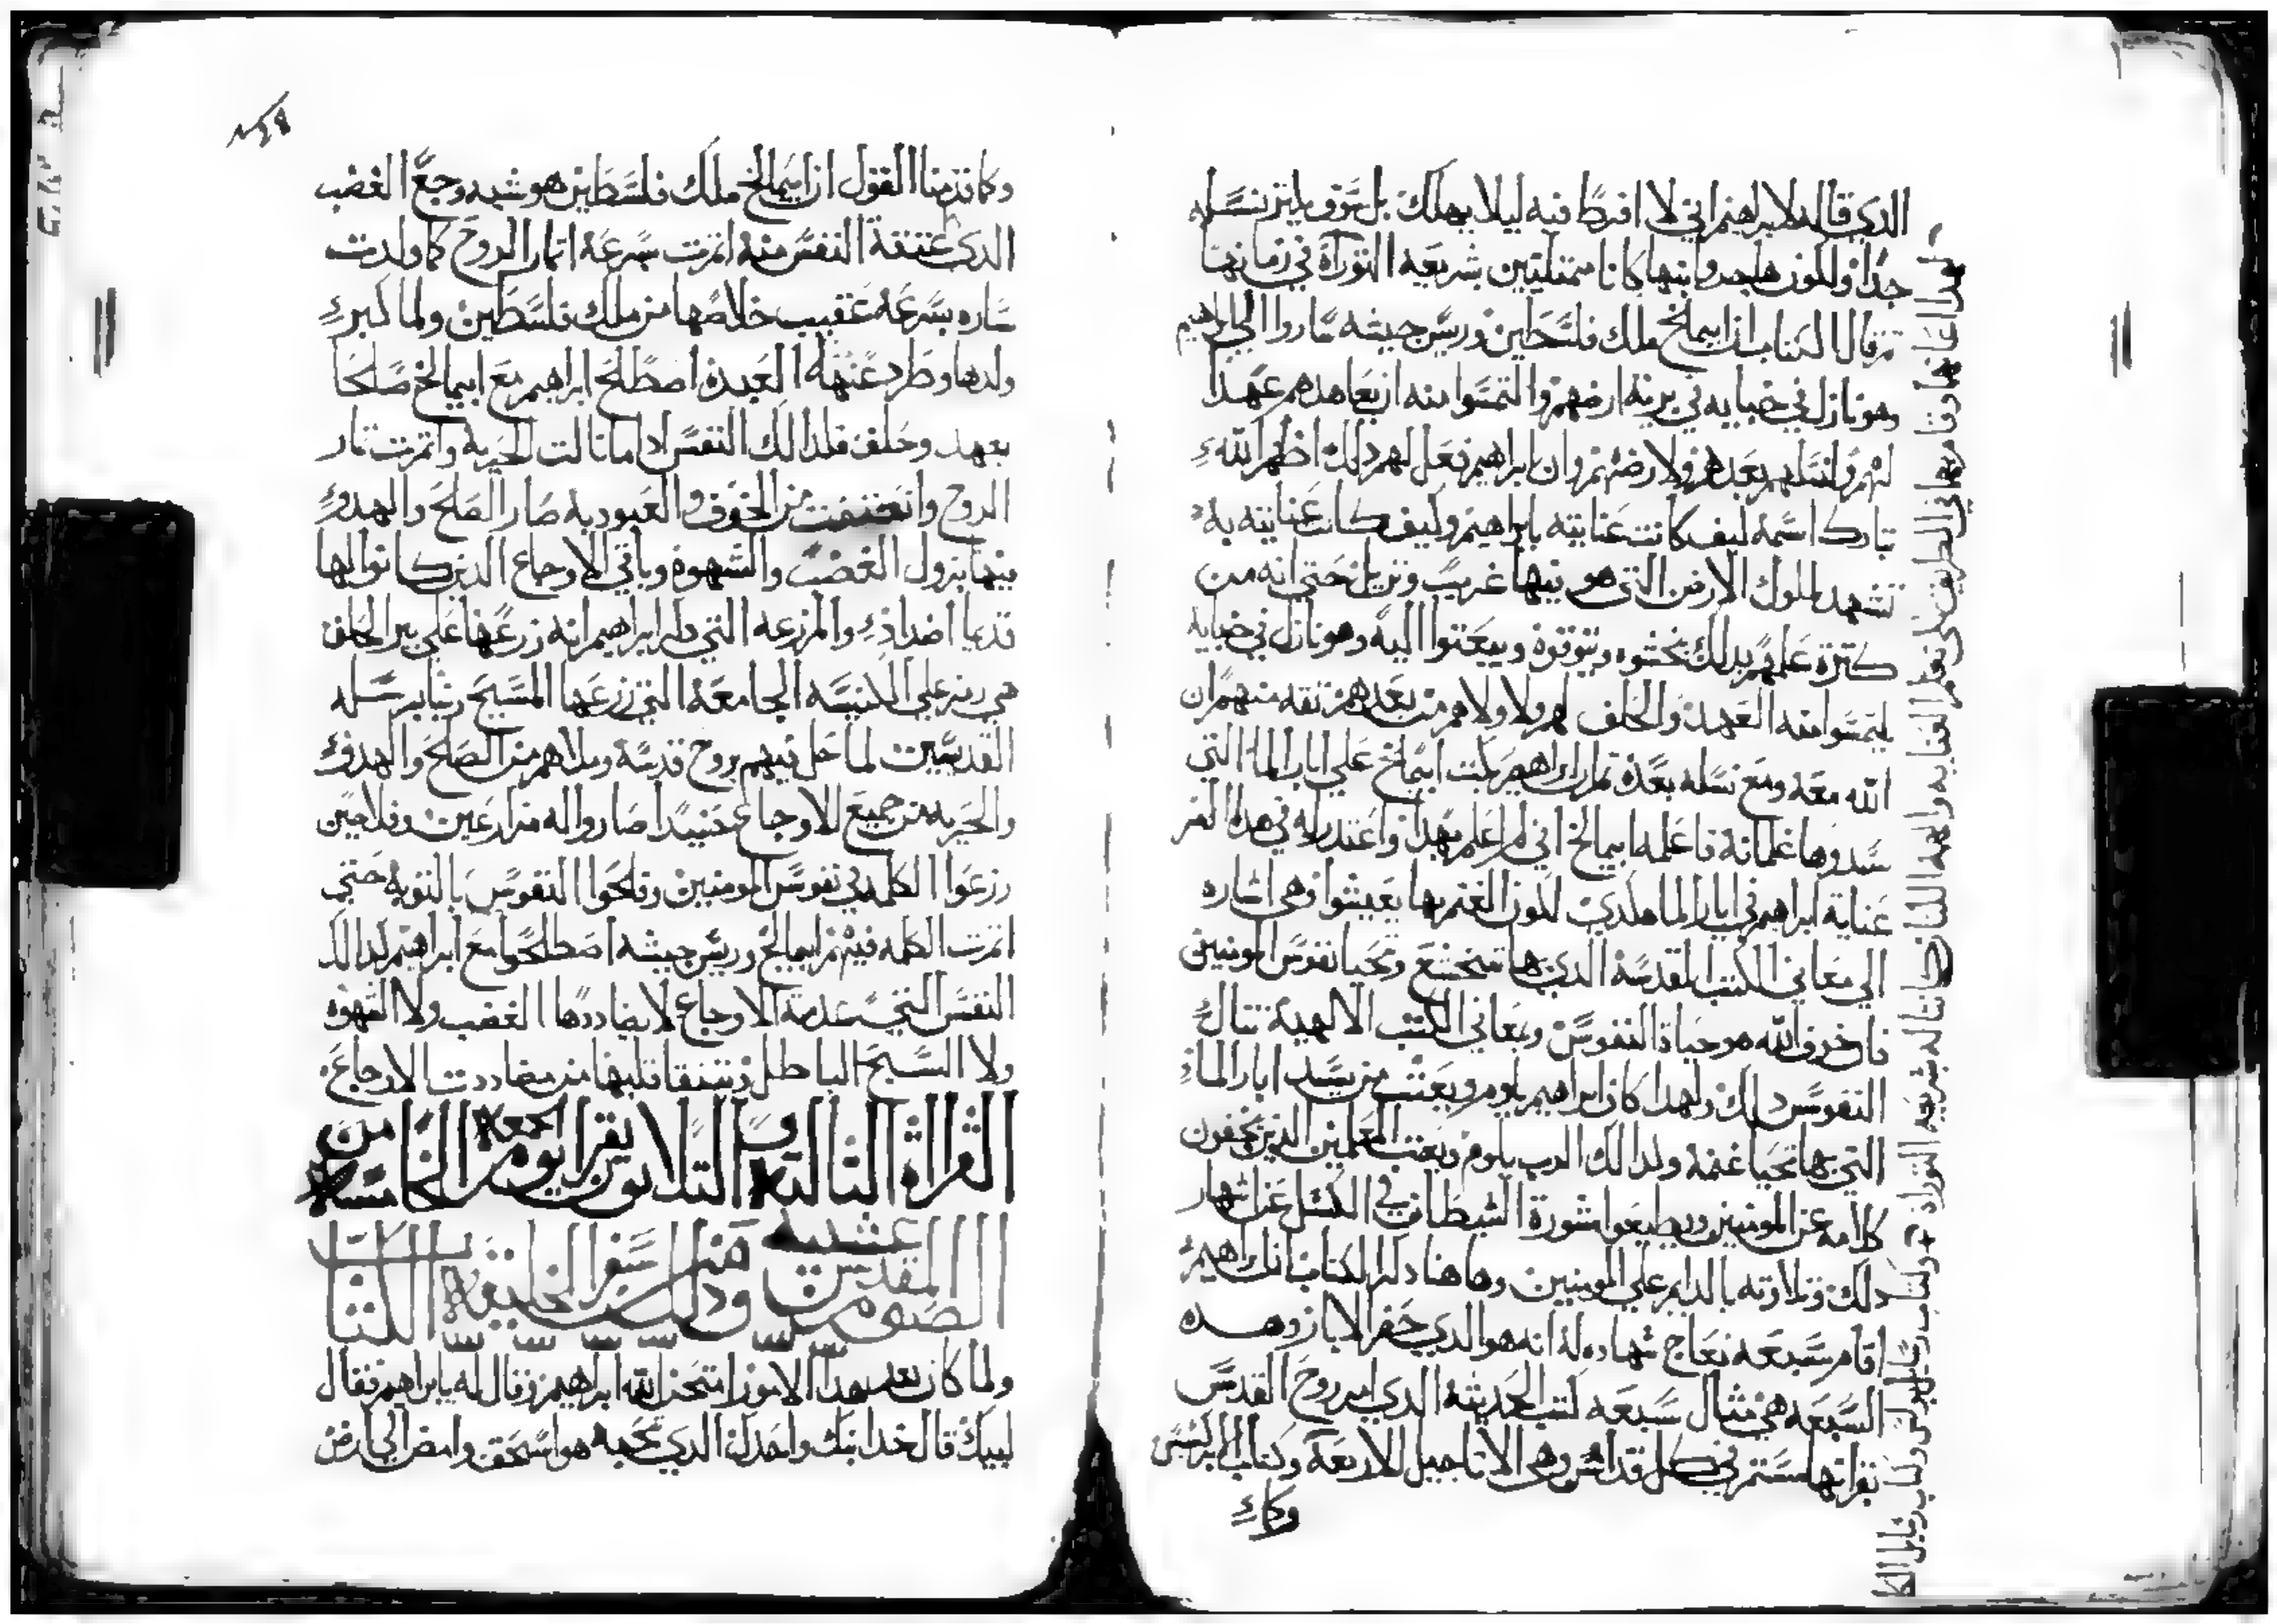 الدي قال لابراهيم اني لا افرط فيه ليلا يهلك بل سوف يكتر نسله
جدا ولكون هاجر وابنها كانا ممتليين شريعة التوراة في زمانها
تم قال الكتاب ان ابيمالخ ملك فلسطين وريس جيشه ساروا الي ابراهيم
وهو نازل في خبايه في برية ارضهم والتمسوا منه ان يعاهدهم عهدا
لهم ولنسلهم بعدهم ولارضهم وان ابراهيم فعل لهم دلك اظهر الله
تبارك اسمه كيف كانت عنايته بابراهيم وكيف كانت عنايته به
تشهد لملوك الارض التي هو فيها غريب ونزيل حتي انه من
كترة علمهم بدلك تخشوه وتوقوه ويبعتوا اليه وهو نازل في خبايه
ليتمسوا منه العهد والحلف لهم ولاولادهم من بعدهم تقه منهم ان
الله معه ومع نسله بعده تم ان ابراهيم بكت ابيمالخ علي ابار الما التي
سدوها غلمانه فاعلمه ابيمالخ اني لم اعلم بهدا واعتدر له في هدا الامر
عناية ابراهيم في ابار الما هكدي لكون الغنم بها يعيشوا وهي اشاره
الي معاني الكتب المقدسة الدي بها تتخشع وتحيا نفوس المومنين
فان خوف الله هو حياة النفوس ومعاني الكتب الالهية تنال
النفوس دلك ولهدا كان ابراهيم يلوم ويعتب من يسد ابار الما
التي بها تحيا غنمه ولدالك الرب يلوم ويعتب المعلمين الدين يخفون
كلامه عن المومنين ويطيعوا مشورة الشيطان في الكسل عن اشهار
دلك وتلاوته بالدايم علي المومنين وهاهنا دكر الكتاب ان ابراهيم
اقام سبعه نعاج شهاده له انه هو الدي حفر الابار وهده
السبعه هي مثال سبعه كتب الحديثه الدي امر روح القدس
بقراتها تستمر في كل قداس وهي الاناجيل الاربعة وكتاب الابركسيس
وكتاب رسايل بولس وكتاب رسايل الكا
وكما
وكما قدمنا القول ان ابيمالخ ملك فلسطين هو شبه وجع الغضب
الدي عتقة النفس منه اتمرت سرعة اتمار الروح كما ولدت
ساره بسرعه عقيب خلاصها من ملك فلسطين ولما كبر
ولدها وطرد عنها العبدة اصطلح ابراهيم مع ابيمالخ صلحا
بعهد وحلف فلدالك النفس ادا ما نالت الحريه واتمرت تمار
الروح وانعتقت من الخوف والعبودية صار الصلح والهدو
فيها بزول الغضب والشهوه وباقي الاوجاع الدين كانوا لها
قديما اضداد والمزرعه التي دكر ابراهيم انه زرعها علي بير الحلف
هي رمز علي الكنيسه الجامعة التي زرعها المسيح وساير رسله
القديسين لما حل فيهم بروح قدسه وملاهم من الصلح والهدو
والحريه من جميع الاوجاع حنيدا صاروا له مزارعين وفلاحين
زرعوا الكلمه في نفوس المومنين وفلحوا النفوس بالتوبه حتي
اتمرت الكلمه فيهم تم ابيمالخ وريس جيشه اصطلحوا مع ابراهيم لدالك
النفس التي عدمة الاوجاع لا يضاددها الغضب ولا الشهوه
ولا السبح الباطل وتستقا قلبها من مضاددت الاوجاع
القراة التالتة والتلاتون يقرا يوم الجمعة الخامسة من
الصوم المقدس وذلك من سفر الخليقة
قال الكتاب
ولما كان بعد هدا الامور امتحن الله ابراهيم وقال له يا ابراهيم فقال
لبيك قال خد ابنك واحدك الدي تحبه هو اسحق وامض الي ارض